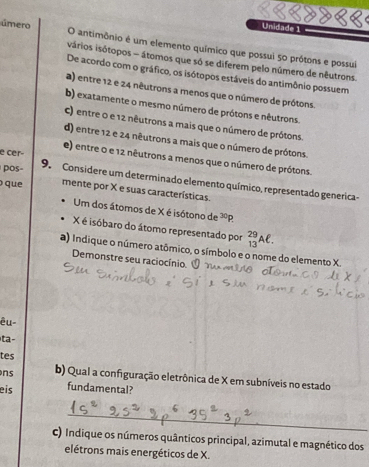 úmero
Unidade 1
O antimônio é um elemento químico que possui 50 prótons e possui
vários isótopos – átomos que só se diferem pelo número de nêutrons.
De acordo com o gráfico, os isótopos estáveis do antimônio possuem
a) entre 12 e 24 nêutrons a menos que o número de prótons.
b) exatamente o mesmo número de prótons e nêutrons.
c) entre 0 e 12 nêutrons a mais que o número de prótons.
d) entre 12 e 24 nêutrons a mais que o número de prótons.
e) entre 0 e 12 nêutrons a menos que o número de prótons.
e cer-
pos-
o que
9. Considere um determinado elemento químico, representado generica-
mente por X e suas características.
• Um dos átomos de X é isótono de ³⁰P.
• X é isóbaro do átomo representado por ²⁹₁₃Aℓ.
a) Indique o número atômico, o símbolo e o nome do elemento X.
Demonstre seu raciocínio. O numero atomico de X
Seu simbolo é Si e seu nome é Silicio
êu-
ta-
tes
ons
eis
b) Qual a configuração eletrônica de X em subníveis no estado
fundamental?
1s² 2s² 2p⁶ 3s² 3p²
c) Indique os números quânticos principal, azimutal e magnético dos
elétrons mais energéticos de X.